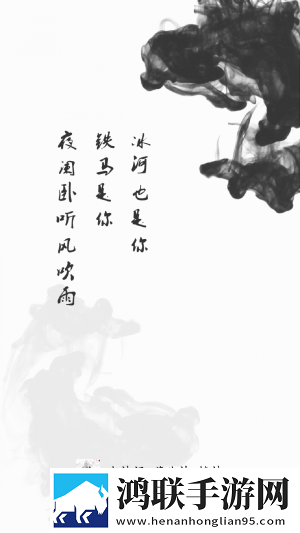 夜阑卧听风吹雨
铁马是你
冰河也是你
鸿联手游网
www.henanhonglian95.com